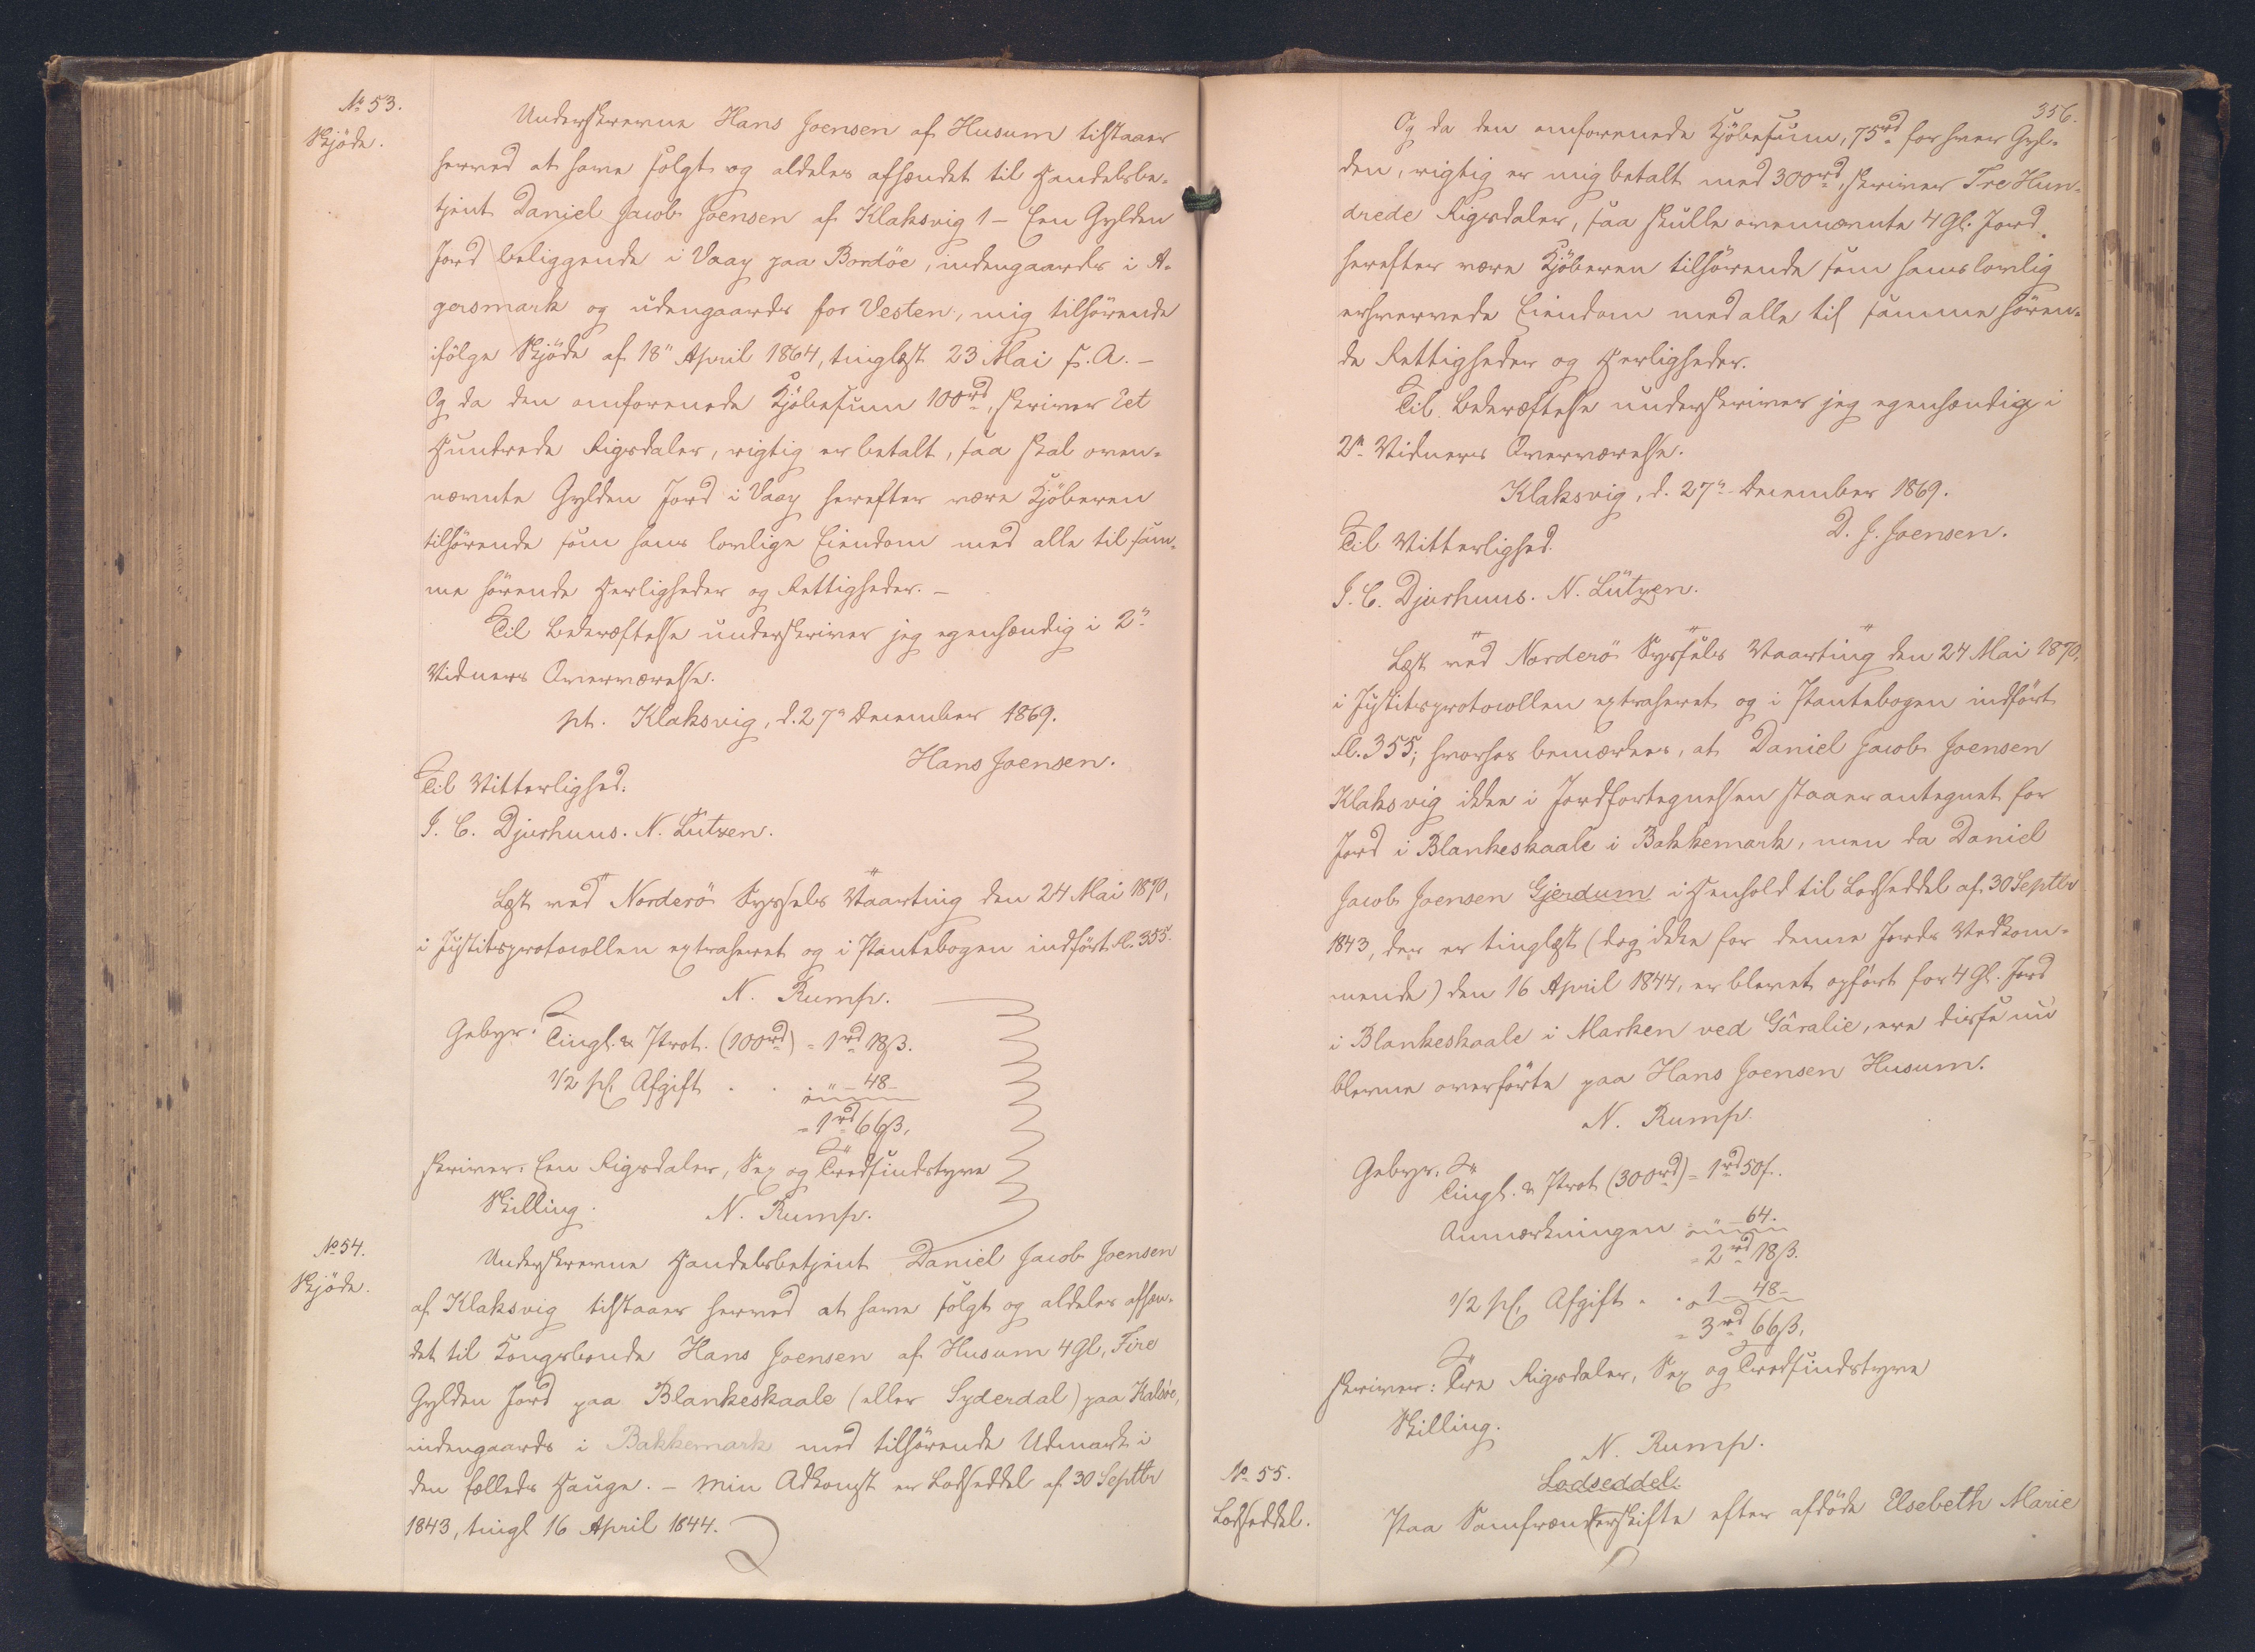 No 53.
Skjöde.
Underskrevne Hans Joensen af Husum tilstaaer
herved at have solgt og aldeles afhændet til Handelsbe-
tjent Daniel Jacob Joensen af Klaksvig 1 - Een Gylden
Jord beliggende i Vaag paa Bordöe, indengaards i A-
gersmark og udengaards for Vesten, mig tilhörende
ifölge Skjöde af 18" April 1864, tinglæst 23 Mai s. A. -
Og da den omforenede Kjöbesum 100rd, skriver Eet
Hundrede Rigsdaler, rigtig er betalt, saa skal oven-
nævnte Gylden Jord i Vaag herefter være Kjöberen
tilhörende som hans lovlige Eiendom med alle til sam-
me hörende Herligheder og Rettigheder. -
Til Bekræftelse underskriver jeg egenhændig i 2n
Vidners Overværelse.
pt. Klaksvig, d. 27n December 1869.
Hans Joensen.
Til Vitterlighed.
J. C. Djurhuus. N. Lützen.
Læst ved Norderö Syssels Vaarting den 24 Mai 1870,
i Justitsprotocollen extraheret og i Pantebogen indfört Fl. 355.
N. Rump.
Gebyr: Tingl. & Prot. (100rd) = 1rd 18ß.
1/2 pCt Afgift . . . " - 48 -
= 1rd 66ß,
skriver: Een Rigsdaler, Sex og Tredsindstyve
Skilling.
N. Rump.
No 54.
Skjöde.
Underskrevne Handelsbetjent Daniel Jacob Joensen
af Klaksvig tilstaaer herved at have solgt og aldeles afhæn-
det til Kongsbonde Hans Joensen af Husum 4 Gl, Fire
Gylden Jord paa Blankeskaale (eller Syderdal) paa Kalsöe,
indengaards i Bakkemark med tilhörende Udmark i
den fælleds Hauge. - Min Adkomst er Lodseddel af 30 Septbr
1843, tingl 16 April 1844.
356.
Og da den omforenede Kjöbesum, 75rd for hver Gyl-
den, rigtig er mig betalt med 300rd, skriver Tre Hun-
drede Rigsdaler, saa skulle ovennævnte 4 Gl. Jord
herefter være Kjöberen tilhörende som hans lovlig
erhvervede Eiendom med alle til samme hören-
de Rettigheder og Herligheder.
Til Bekræftelse underskriver jeg egenhændig i
2n Vidners Overværelse.
Klaksvig, d. 27n December 1869.
D. J. Joensen.
Til Vitterlighed.
J. C. Djurhuus. N. Lützen.
Læst ved Norderö Syssels Vaarting den 24 Mai 1870,
i Justitsprotocollen extraheret og i Pantebogen indfört
Fl. 355; hvorhos bemærkes, at Daniel Jacob Joensen
Klaksvig ikke i Jordfortegnelsen staaer antegnet for
Jord i Blankeskaale i Bakkemark, men da Daniel
Jacob Joensen Gjerdum i Henhold til Lodseddel af 30 Septbr
1843, der er tinglæst (dog ikke for denne Jords Vedkom-
mende) den 16 April 1844, er blevet opfört for 4 Gl. Jord
i Blankeskaale i Marken ved Gäralie, ere disse nu
blevne overförte paa Hans Joensen Husum.
N. Rump.
Gebyr. Tingl. & Prot (300rd) = 1rd 50ß.
Anmærkningen = " - 64.
= 2rd 18ß.
1/2 pCt, Afgift . . 1 - 48 -
= 3rd 66ß,
skriver: Tre Rigsdaler, Sex og Tredsindstyve
Skilling.
N. Rump.
No 55.
Lodseddel.
Lodseddel.
Paa Samfrænderskifte efter afdöde Elsebeth Marie